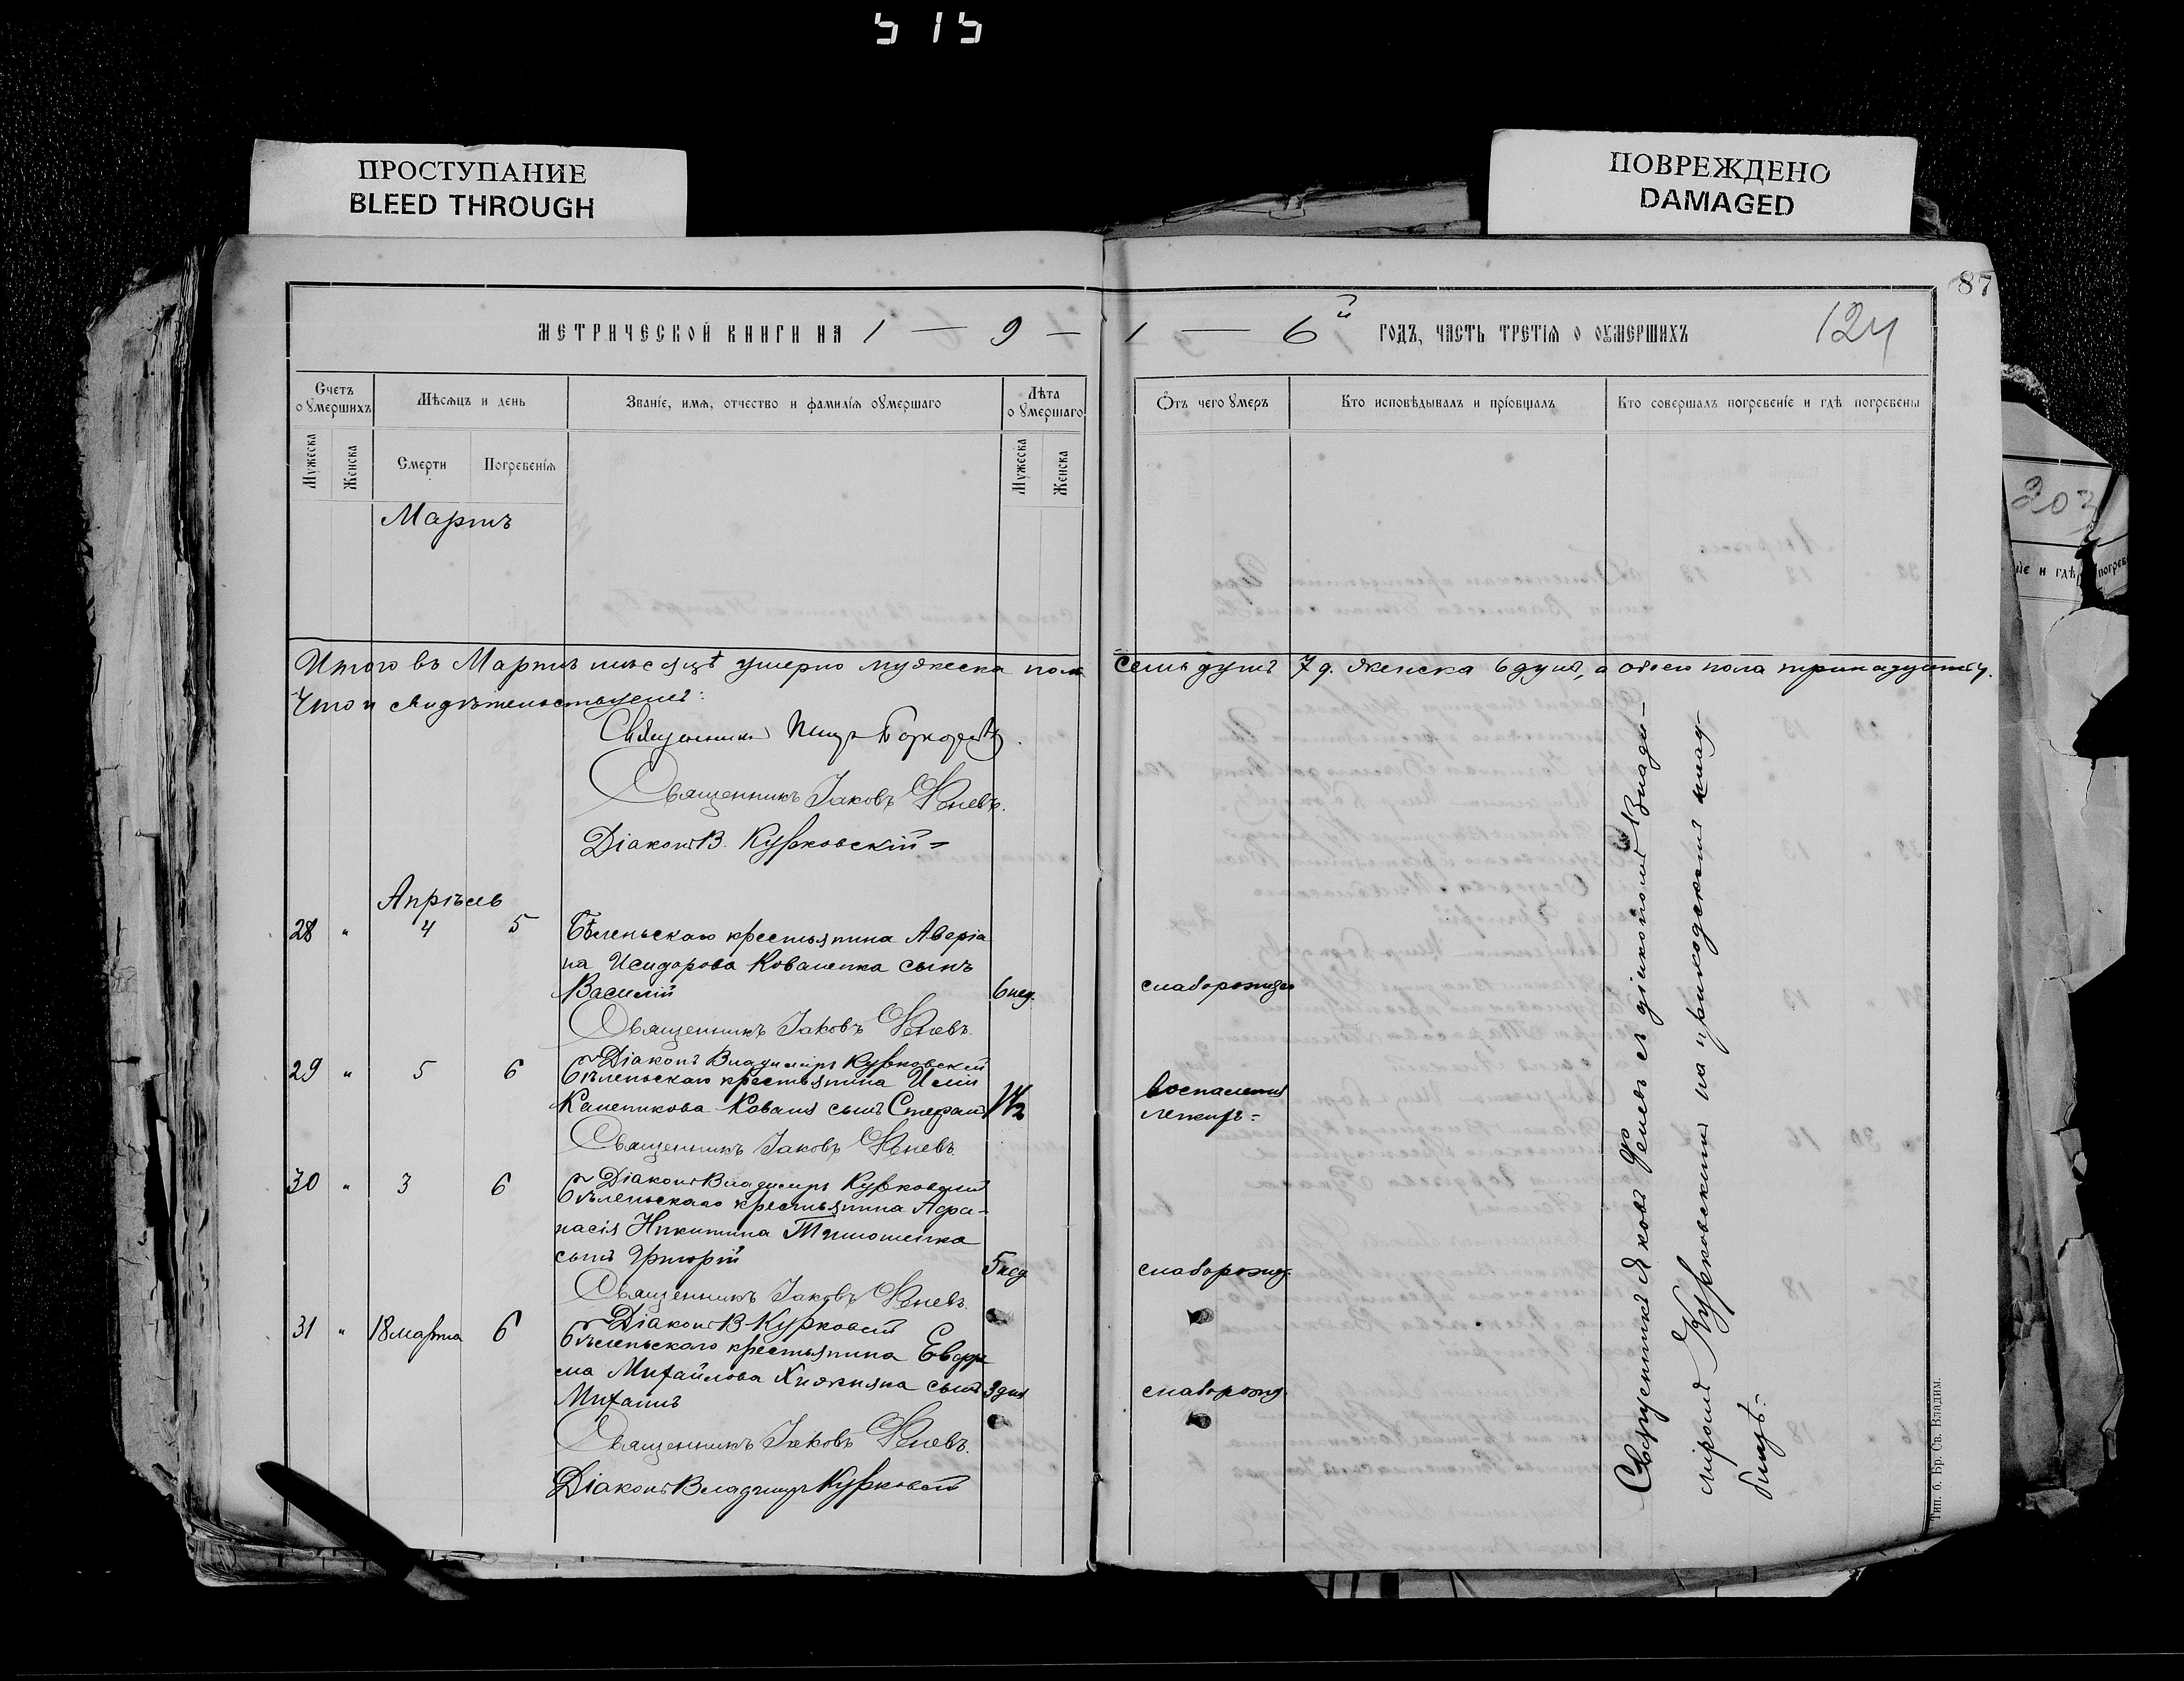 515
ПРОСТУПАНИЕ
BLEED THROUGH
ПОВРЕЖДЕНО
DAMAGED
87
МЕТРИЧЕСКОЙ КНИГИ НА 1 — 9 — 1 — 6й ГОДЪ, ЧАСТЬ ТРЕТІЯ О ОУМЕРШИХЪ
124
Счетъ оумершихъ
Мѣсяцъ и день
Званіе, имя, отчество и фамилія оумершаго
Лѣта оумершаго
Отъ чего умеръ
Кто исповѣдывалъ и пріобщалъ
Кто совершалъ погребеніе и гдѣ погребены
Мужеска
Женска
Смерти
Погребенія
Мужеска
Женска
203
Мартъ
Итого въ Мартѣ мѣсяцѣ умерло мужеска пола семь душъ 7 д. женска 6 душъ, а обоего пола тринадцать
Что и свидѣтельствуемъ:
Священникъ
Священникъ Іаковъ Феневъ.
Діаконъ В. Курковскій
Апрѣль
28 " 4 5 Бѣленьскаго крестьянина Аверіа
на Исидорова Коваленка сынъ
Василій 6 нед. слаборожден
Священникъ Іаковъ Феневъ.
Діаконъ Владиміръ Курковскій
29 " 5 6 Бѣленьскаго крестьянина Иліи
Калепикова Коваля сынъ Стефанъ 1½ воспаленія
легкихъ
Священникъ Іаковъ Феневъ.
Діаконъ Владиміръ Курковскій
30 " 3 6 Бѣленьскаго крестьянина Афа-
насія Никитина Тимошенка
сынъ Григорій 5 нед слаборожд.
Священникъ Іаковъ Феневъ.
Діаконъ В. Курковскій
31 " 18 марта 6 Бѣленьскаго крестьянина Евфи
ма Михайлова Хижняка сынъ 3 дня слаборожд.
Михаилъ
Священникъ Іаковъ Феневъ.
Діаконъ Владиміръ Курковскій
Священникъ Яковъ Феневъ съ діакономъ Влади-
міромъ Курковскимъ на приходскомъ клад-
бищѣ.
Тип. б. Бр. Св. Владим.